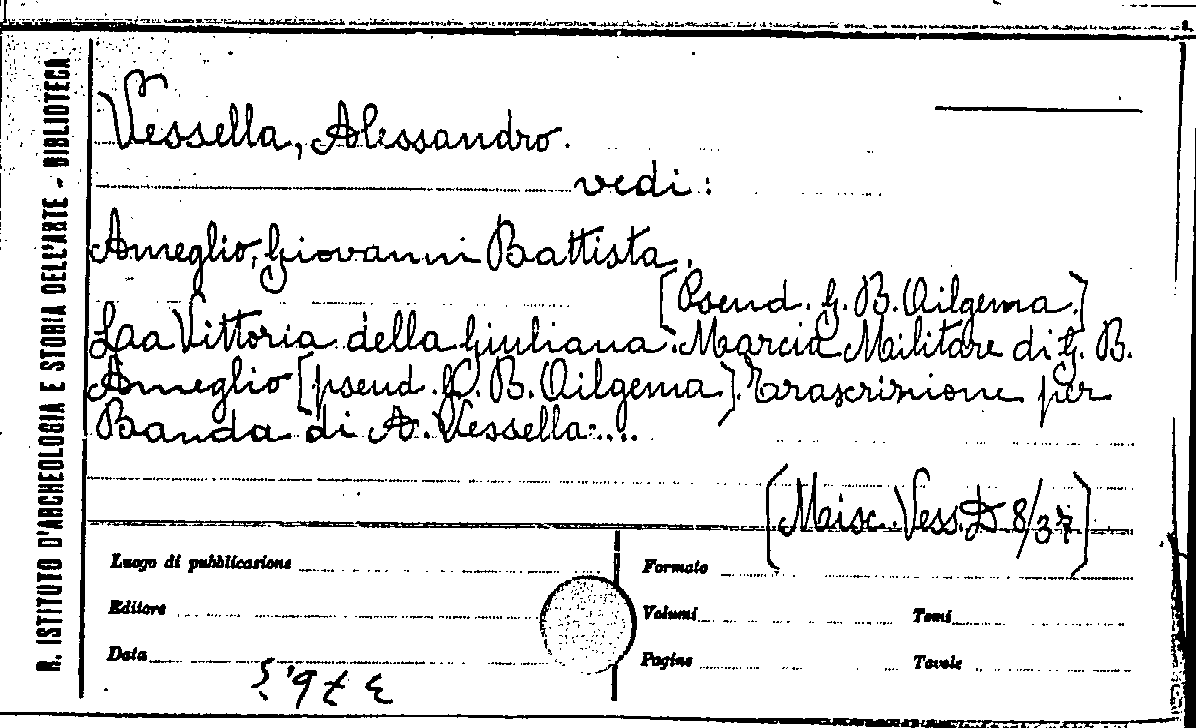 R. ISTITUTO D'ARCHEOLOGIA E STORIA DELL'ARTE - BIBLIOTECA
Vessella, Alessandro.
vedi:
Ameglio, Giovanni Battista.
[Pseud. G. B. Oilgema.]
La Vittoria della Giuliana. Marcia Militare di G. B.
Ameglio [pseud. G. B. Oilgema]. Trascrizione per
Banda di A. Vessella....
[Misc. Vess. D 8/37]
Luogo di pubblicazione
Formato
Editore
Volumi
Tomi
Data
Pagine
Tavole